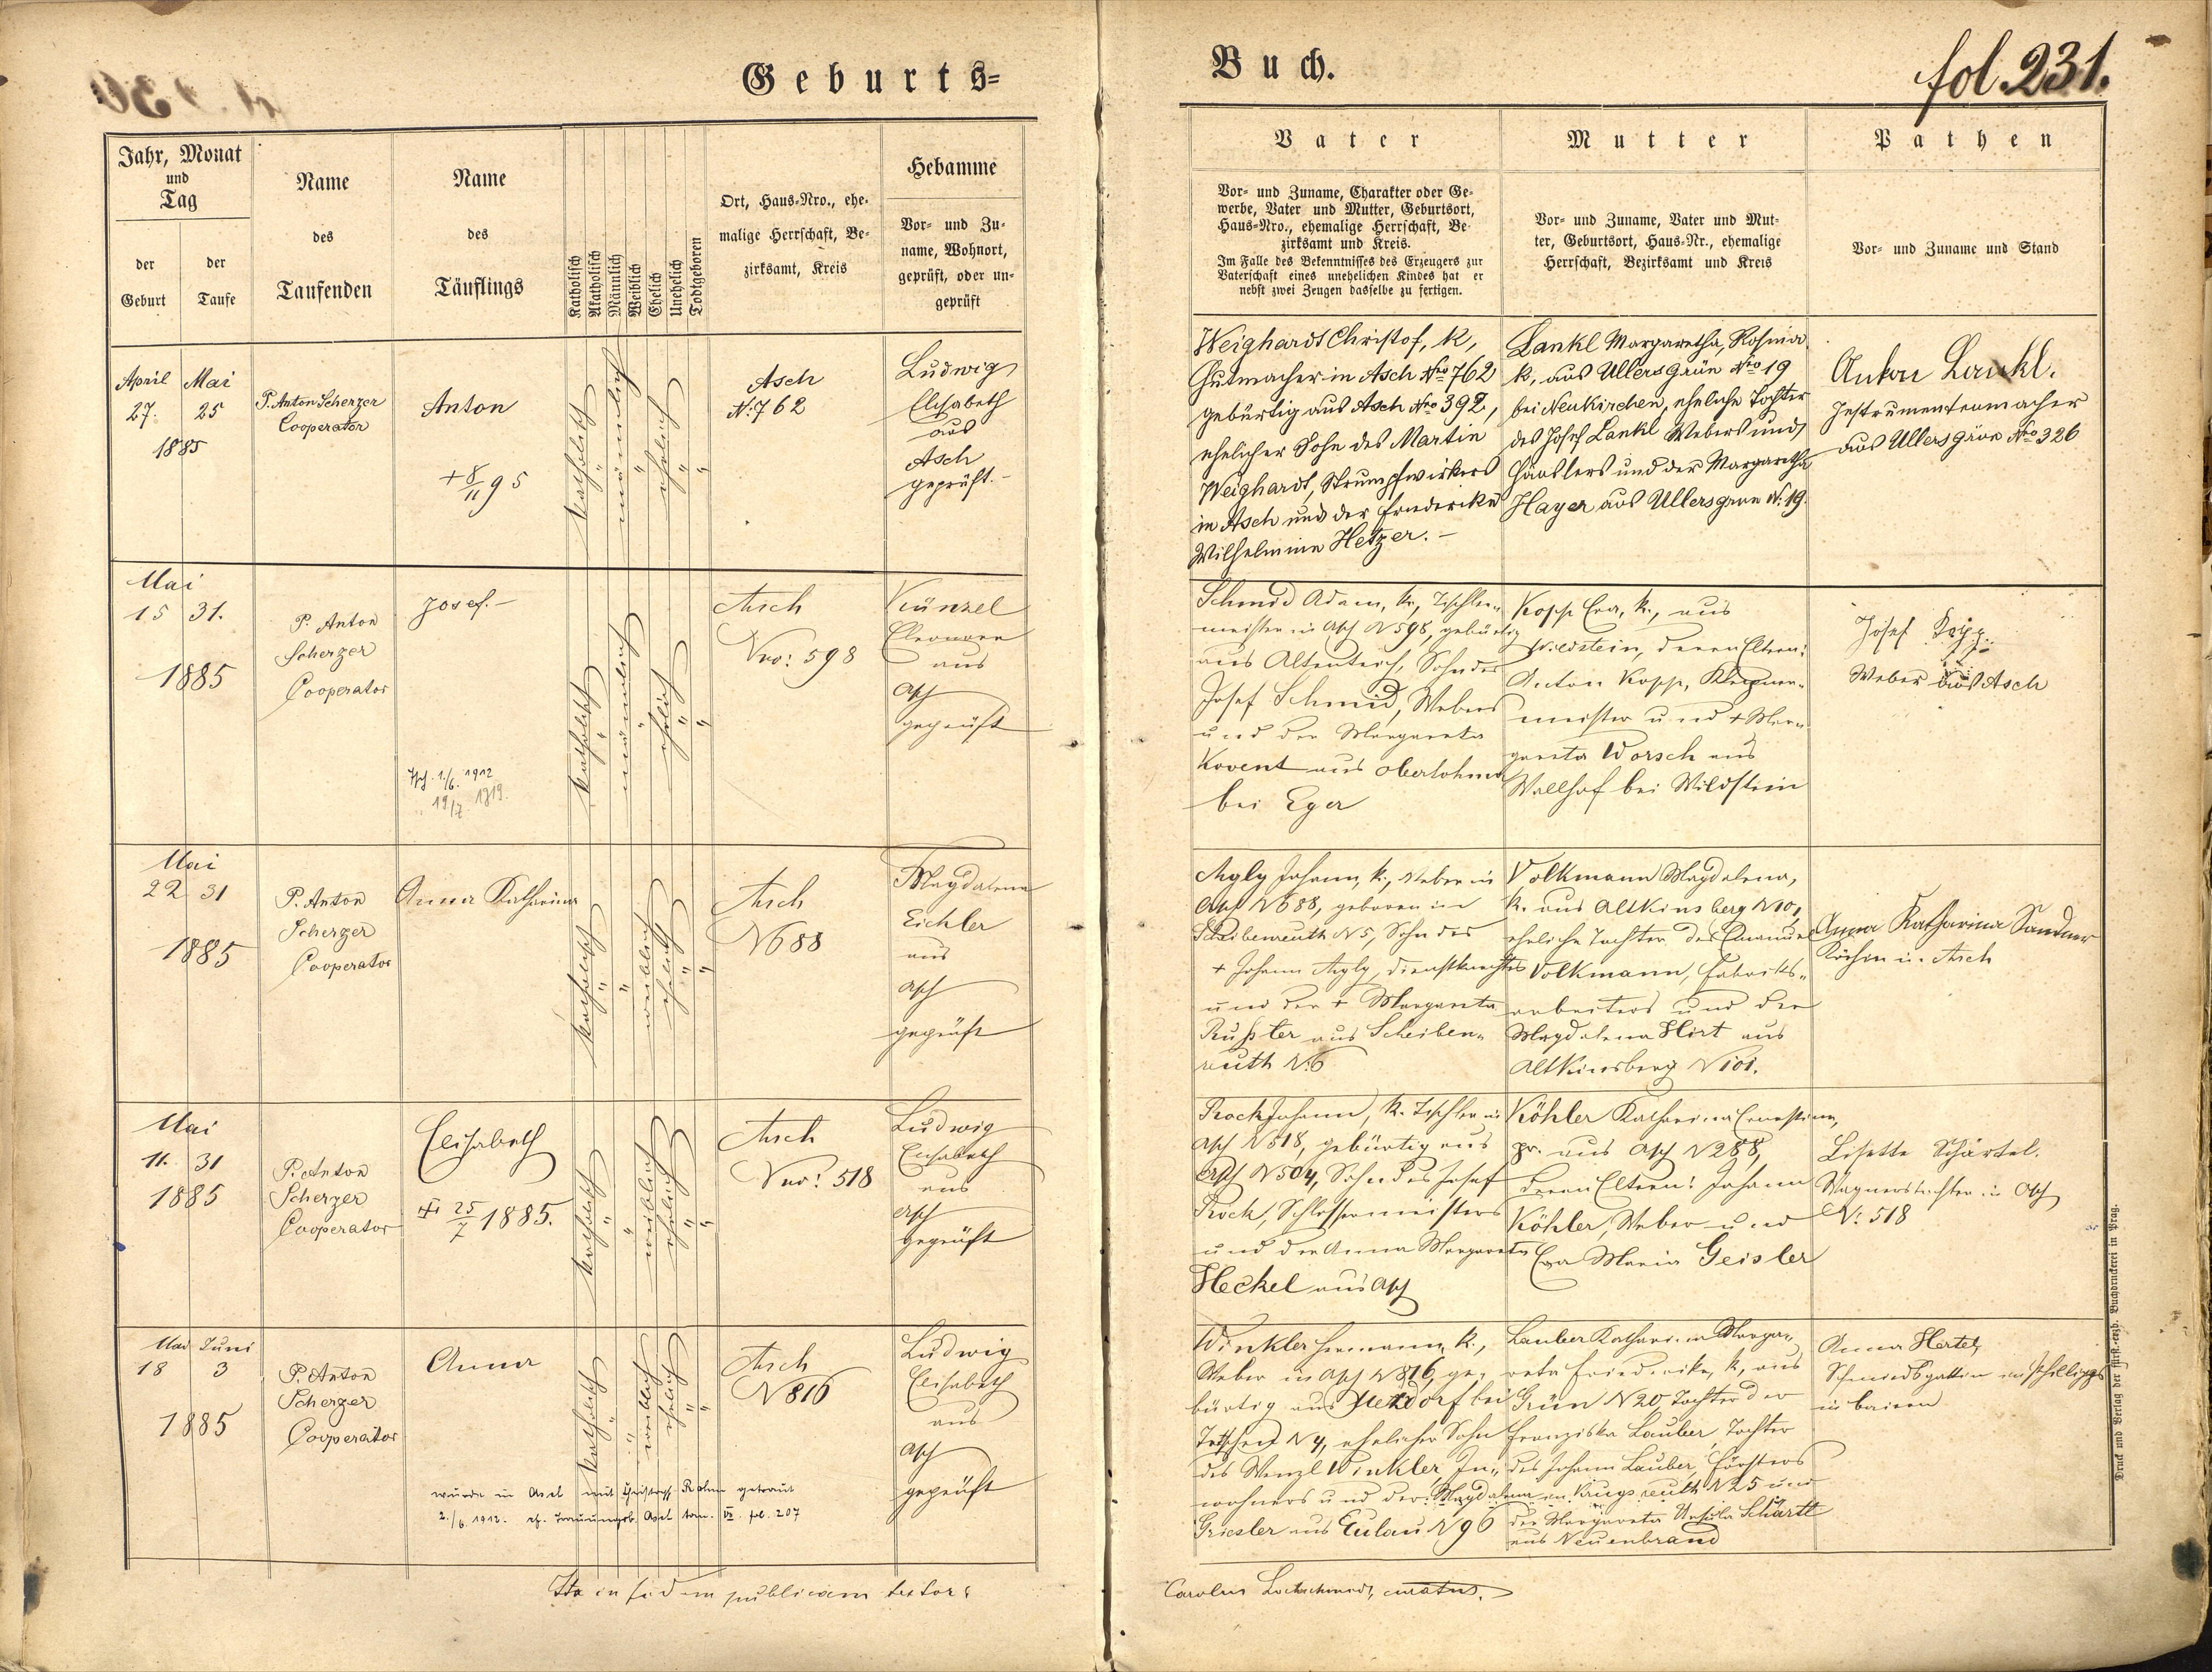 Geburts=
Buch.
fol. 231.
Jahr, Monat
und
Tag
der
Geburt
der
Taufe
Name
des
Taufenden
Name
des
Täuflings
Katholisch
Akatholisch
Männlich
Weiblich
Ehelich
Unehelich
Todtgeboren
Ort, Haus-Nro., ehe-
malige Herrschaft, Be-
zirksamt, Kreis
Hebamme
Vor- und Zu-
name, Wohnort,
geprüft, oder un-
geprüft
Vater
Vor- und Zuname, Charakter oder Ge-
werbe, Vater und Mutter, Geburtsort,
Haus-Nro., ehemalige Herrschaft, Be-
zirksamt und Kreis.
Im Falle des Bekenntnisses des Erzeugers zur
Vaterschaft eines unehelichen Kindes hat er
nebst zwei Zeugen dasselbe zu fertigen.
Mutter
Vor- und Zuname, Vater und Mut-
ter, Geburtsort, Haus-Nr., ehemalige
Herrschaft, Bezirksamt und Kreis
Pathen
Vor- und Zuname und Stand
April Mai
27. 25
1885
P. Anton Scherzer
Cooperator
Anton
+ 8/11 95
katholisch
"
männlich
"
ehelich
"
"
Asch
N: 762
Ludwig
Elisabeth
aus
Asch
geprüft.-
Weighardt Christof, k,
Hutmacher in Asch Nro 762
gebürtig aus Asch Nro 392,
ehelicher Sohn des Martin
Weighardt, Strumpfwirkers
in Asch und der Friederike
Wilhelmine Hetzer.-
Lankl Margaretha, Rosina
k, aus Ullersgrün Nro 19
bei Neukirchen, eheliche Tochter
des Josef Lankl Webers und
Häuslers und der Margaretha
Hayer aus Ullersgrün N: 19.
Anton Lankl.
Instrumentenmacher
aus Ullersgrün Nro 326
Mai
15 31.
1885
P. Anton
Scherzer
Cooperator
Josef.-
1./6. 1912
19/7 1919.
katholisch
"
männlich
"
ehelich
"
"
Asch
Nro: 598
Künzel
Eleonora
aus
Asch
geprüft
Schmid Adam, k., Tischler-
meister in Asch N 598, gebürtig
aus Altenteich, Sohn des
Josef Schmid, Webers
und der Margareta
Kovent aus Oberlohma
bei Eger
Kopp Eva, k., aus
Wildstein, deren Eltern:
Anton Kopp, Klempner-
meister und + Mar-
gareta Worsch aus
Wallhof bei Wildstein
Josef Kopp.
Weber aus Asch
Mai
22 31
1885
P. Anton
Scherzer
Cooperator
Anna Katharina
katholisch
"
"
weiblich
ehelich
"
"
Asch
N 688
Magdalena
Eichler
aus
Asch
geprüft
Agly Johann, k., Weber in
Asch N 688, geboren in
Scheibenreuth N 5, Sohn des
+ Johann Agly, Dienstknechtes
und der + Margareta
Rußter aus Scheiben-
reuth N.6
Volkmann Magdalena,
k. aus Altkinsberg N 101,
eheliche Tochter des Emanuel
Volkmann, Fabriks-
arbeiters und der
Magdalena Hirt aus
Altkinsberg N 101.
Anna Katharina Sandner
Köchin in Asch
Mai
11. 31
1885
P. Anton
Scherzer
Cooperator
Elisabeth
+ 25/7 1885.
katholisch
"
"
weiblich
ehelich
"
"
Asch
Nro: 518
Ludwig
Elisabeth
aus
Asch
geprüft
Rock Johann, k. Tischler in
Asch N 518, gebürtig aus
Asch N 504, Sohn des Josef
Rock, Schlossermeisters
und der Anna Margareta
Heckel aus Asch
Köhler Katharina Ernestine,
pr. aus Asch N 288,
deren Eltern: Johann
Köhler, Weber und
Eva Maria Geisler
Lisette Schärtel.
Wagnerstochter in Asch
N: 518
Mai Juni
18 3
1885
P. Anton
Scherzer
Cooperator
Anna
katholisch
"
"
weiblich
ehelich
"
"
wurde in Asch mit Christoph Rahm getraut
2./6. 1912. cf. Trauungsb. Asch tom. VI. fol. 207
Asch
N 816
Ludwig
Elisabeth
aus
Asch
geprüft
Winkler Hermann, k.,
Weber in Asch N 816, ge-
bürtig aus bei
Tetschen N 4, ehelicher Sohn
des Wenzl Winkler, In-
wohners und der Magdalena
Griesler aus Eulau N 96
Lauber Katharina Marga-
reta Friederike, k, aus
Grün N 20, Tochter der
Franziska Lauber, Tochter
des Johann Lauber, Försters
in Krugsreuth N 25 und
der Margareta Ursula Schärtl
aus Neuenbrand
Anna Hertel,
Schmiedsgattin
in Baiern
Ita in fidem publicam testor:
Carolus curatus.
Druck und Verlag der fürst.-erzb. Buchdruckerei in Prag.